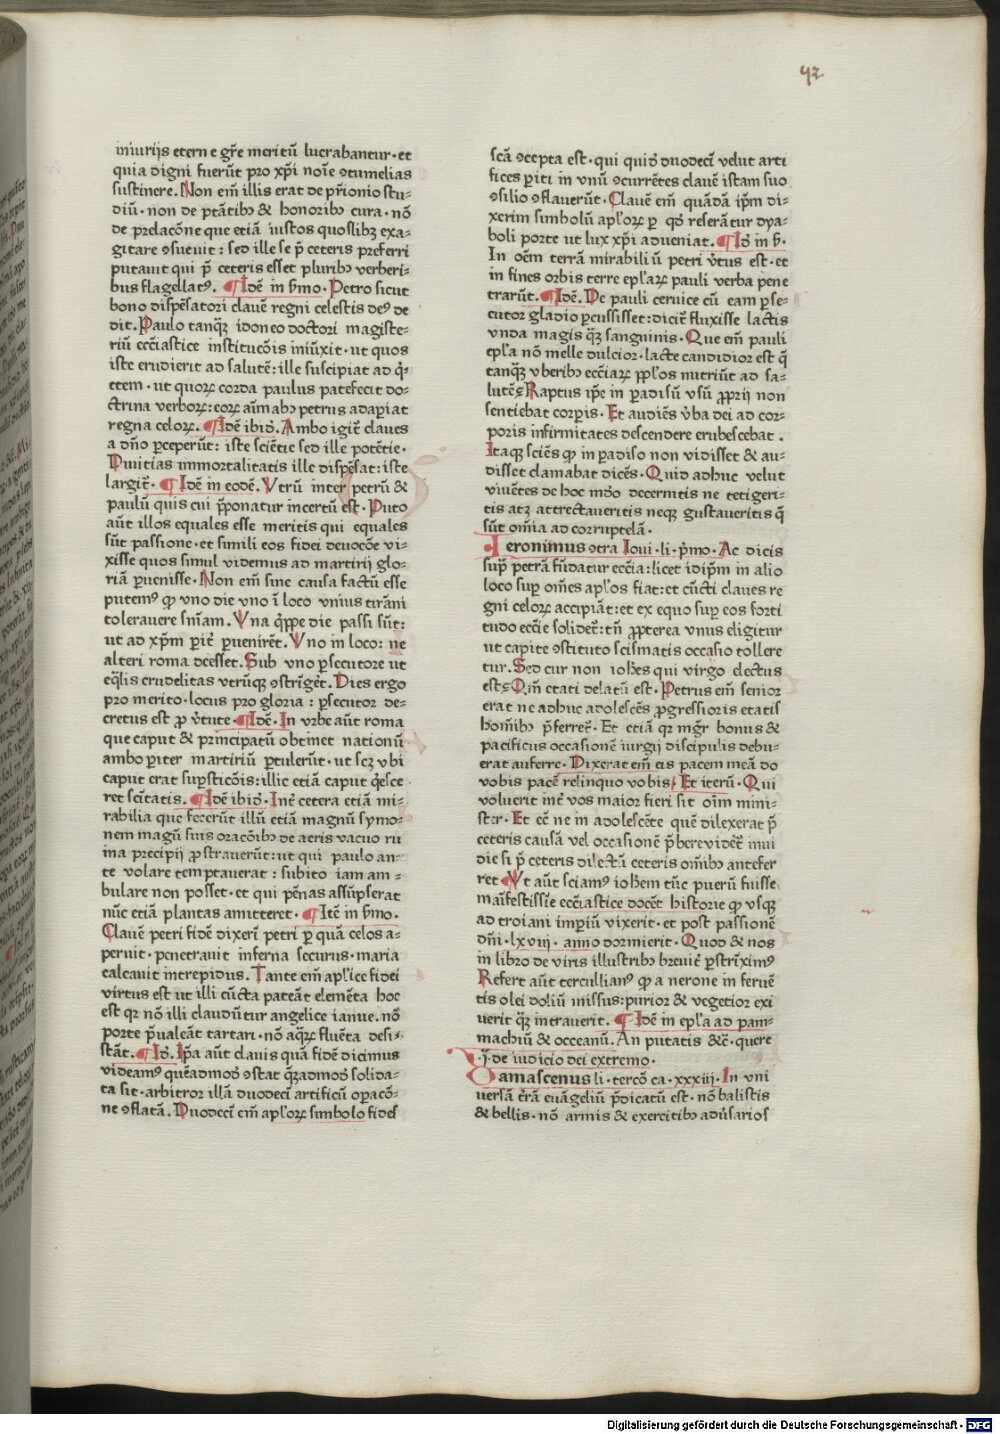 42
iniurijs eterne gr̃e meritū lucrabantur·et
quia digni fuerūt pro xp̄i noīe ꝯtumelias
sustinere. Non em̄ illis erat de p̄mionio stu-
diū·non de ptātibꝰ & honoribꝰ cura·nō
de prelacōne que etiā iustos quoslibꝫ exa-
gitare ꝯsueuit: sed ille se p̄ ceteris preferri
putauit qui p̄ ceteris esset pluribꝰ verberi-
bus flagellatꝰ. ¶Idē in ẜmo·Petro sicut
bono dispēsatori clauē regni celestis deꝰ de
dit. Paulo tanqꝫ idoneo doctori magiste-
riū ecc̄iastice institucōis iniūxit·ut quos
iste erudierit ad salutē: ille suscipiat ad q̇-
etem·ut quoꝝ corda paulus patefecit do-
ctrina verboꝝ: eoꝝ aīmabꝰ petrus adapiat
regna celoꝝ. ¶Idē ibid̄. Ambo igit̄ claues
a dn̄o ꝑceperūt: iste sciētie sed ille potētie·
Diuitias immortalitatis ille dispēsat: iste
largit̄· ¶Idē in eodē. Vtrū inter petrū &
paulū quis cui p̄ponatur incertū est·Puto
aūt illos equales esse meritis qui equales
sūt passione·et simili eos fidei deuocōe vi-
xisse quos simul videmus ad martirij glo-
riā ꝑuenisse·Non em̄ sine causa factū esse
putemꝰ ꝙ vno die vno ī loco vnius tirāni
tolerauere sn̄iam. Vna q̄ppe die passi sūt:
ut ad xp̄m pit̄ ꝑuenirēt. Vno in loco: ne
alteri roma deesset. Sub vno ꝑsecutore ut
eq̄lis crudelitas vtrūqꝫ ꝯstrīg̃et. Dies ergo
pro merito·locus pro gloria: ꝑsecutor de-
cretus est ꝓ v̄tute·¶Idē·In vrbe aūt roma
que caput & principatū obtinet nationū
ambo ꝑiter martiriū ꝑtulerūt·ut scꝫ vbi
caput erat suꝑsticōis: illic etiā caput q̇esce
ret scītatis. ¶Idē ibid̄·Int̄ cetera etiā mi-
rabilia que fecerūt illū etiā magnū symo-
nem magū suis oracōibꝰ de aeris vacuo ru
ina precipij ꝓstrauerūt: ut qui paulo an-
te volare temptauerat: subito iam am-
bulare non posset·et qui pēnas assūpserat
nūc etiā plantas amitteret· ¶Itē in ẜmo·
Clauē petri fidē dixerī petri ꝑ quā celos a-
peruit·penetrauit inferna securus·maria
calcauit intrepidus. Tante em̄ apl̄ice fidei
virtus est ut illi cūcta pateāt elemēta hoc
est qꝛ nō illi claudūtur angelice ianue·nō
porte p̄ualeāt tartari·nō aq̄ꝝ fluēta desi-
stāt.¶Id̄. Ip̄a aūt clauis quā fidē dicimus
videamꝰ quēadmod̄ ꝯstat q̄ꝫadmod̄ solida-
ta sit·arbitror illā duodecī artificū oꝑacō-
ne ꝯflatā. Duodecī em̄ apl̄oꝝ simbolo fides
scā ꝯcepta est·qui quid̄ duodecī velut arti
fices ꝑiti in vnū ꝯcurrētes clauē istam suo
ꝯsilio ꝯflauerūt·Clauē em̄ quādā ip̄m di-
xerim simbolū apl̄oꝝ ꝑ qd̄ reserātur dya-
boli porte ut lux xp̄i adueniat. ¶Id̄ in ẜ·
In oēm terrā mirabiliū petri v̄tus est·et
in fines orbis terre epl̄aꝝ pauli verba pene
trarūt. ¶Idē. De pauli ceruice cū eam ꝑse-
cutor gladio ꝑcussisset: dicit̄ fluxisse lactis
vnda magis q̄ꝫ sanguinis·Que em̄ pauli
epl̄a nō melle dulcior·lacte candidior est q̄
tanqꝫ vberibꝰ ecc̄iaꝝ pp̄los nutriūt ad sa-
lutē. Raptus ip̄e in ꝑadisū vsū ꝓprij non
sentiebat corꝑis·Et audiēs v̄ba dei ad cor-
poris infirmitates descendere erubescebat.
Itaqꝫ sciēs ꝙ in ꝑadiso non vidisset & au-
disset clamabat dicēs·Quid adhuc velut
viuētes de hoc mūdo decernitis ne tetigeri-
tis atꝫ attrectaueritis neqꝫ gustaueritis q̄
sūt om̄ia ad corruptelā·
Ieronimus ꝯtra Ioui·li·p̄mo·Ac dicis
suꝑ petrā fūdatur ecc̄ia: licet idip̄m in alio
loco suꝑ om̄es apl̄os fiat: et cūcti claues re
gni celoꝝ accipiāt: et ex equo suꝑ eos forti
tudo ecc̄ie solidet̄: tn̄ ꝓpterea vnus eligitur
ut capite ꝯstituto scismatis occasio tollere
tur. Sed cur non ioh̄es qui virgo electus
est. Qm̄ etati delatū est·Petrus em̄ senior
erat ne adhuc adolescēs ꝓgressioris etatis
homībꝰ p̄ferret̄·Et etiā qꝛ mgr̄ bonus &
pacificus occasionē iurgij discipulis debu-
erat auferre. Dixerat em̄ eis pacem meā do
vobis pacē relinquo vobis. Et iterū·Qui
voluerit int̄ vos maior fieri sit oīm mini-
ster·Et eē ne in adolescēte quē dilexerat p̄
ceteris causā vel occasionē p̄bere videret̄ inui
die si p̄ ceteris dilectū ceteris omībꝰ antefer
ret ¶Vt aūt sciamꝰ ioh̄em tūc puerū fuisse
maīfestissie ecc̄iastice docēt historie ꝙ vsqꝫ
ad troiani imꝑiū vixerit·et post passionē
dn̄i·lxviij·anno dormierit·Quod & nos
in libro de viris illustribꝰ breuit̄ ꝑstrīximꝰ
Refert aūt tertullianꝰ ꝙ a nerone in feruē
tis olei doliū missus: purior & vegetior exi
uerit q̄ꝫ intrauerit. ¶Idē in epl̄a ad pam-
machiū & occeanū. An putatis &c̄·quere
·ij·de iudicio dei extremo·
Damascenus li·tercō ca·xxxiiij·In vni
uersā t̄rā euāgeliū p̄dicatū est·nō balistis
& bellis·nō armis & exercitibꝰ adūsarios
Digitalisierung gefördert durch die Deutsche Forschungsgemeinschaft · DFG